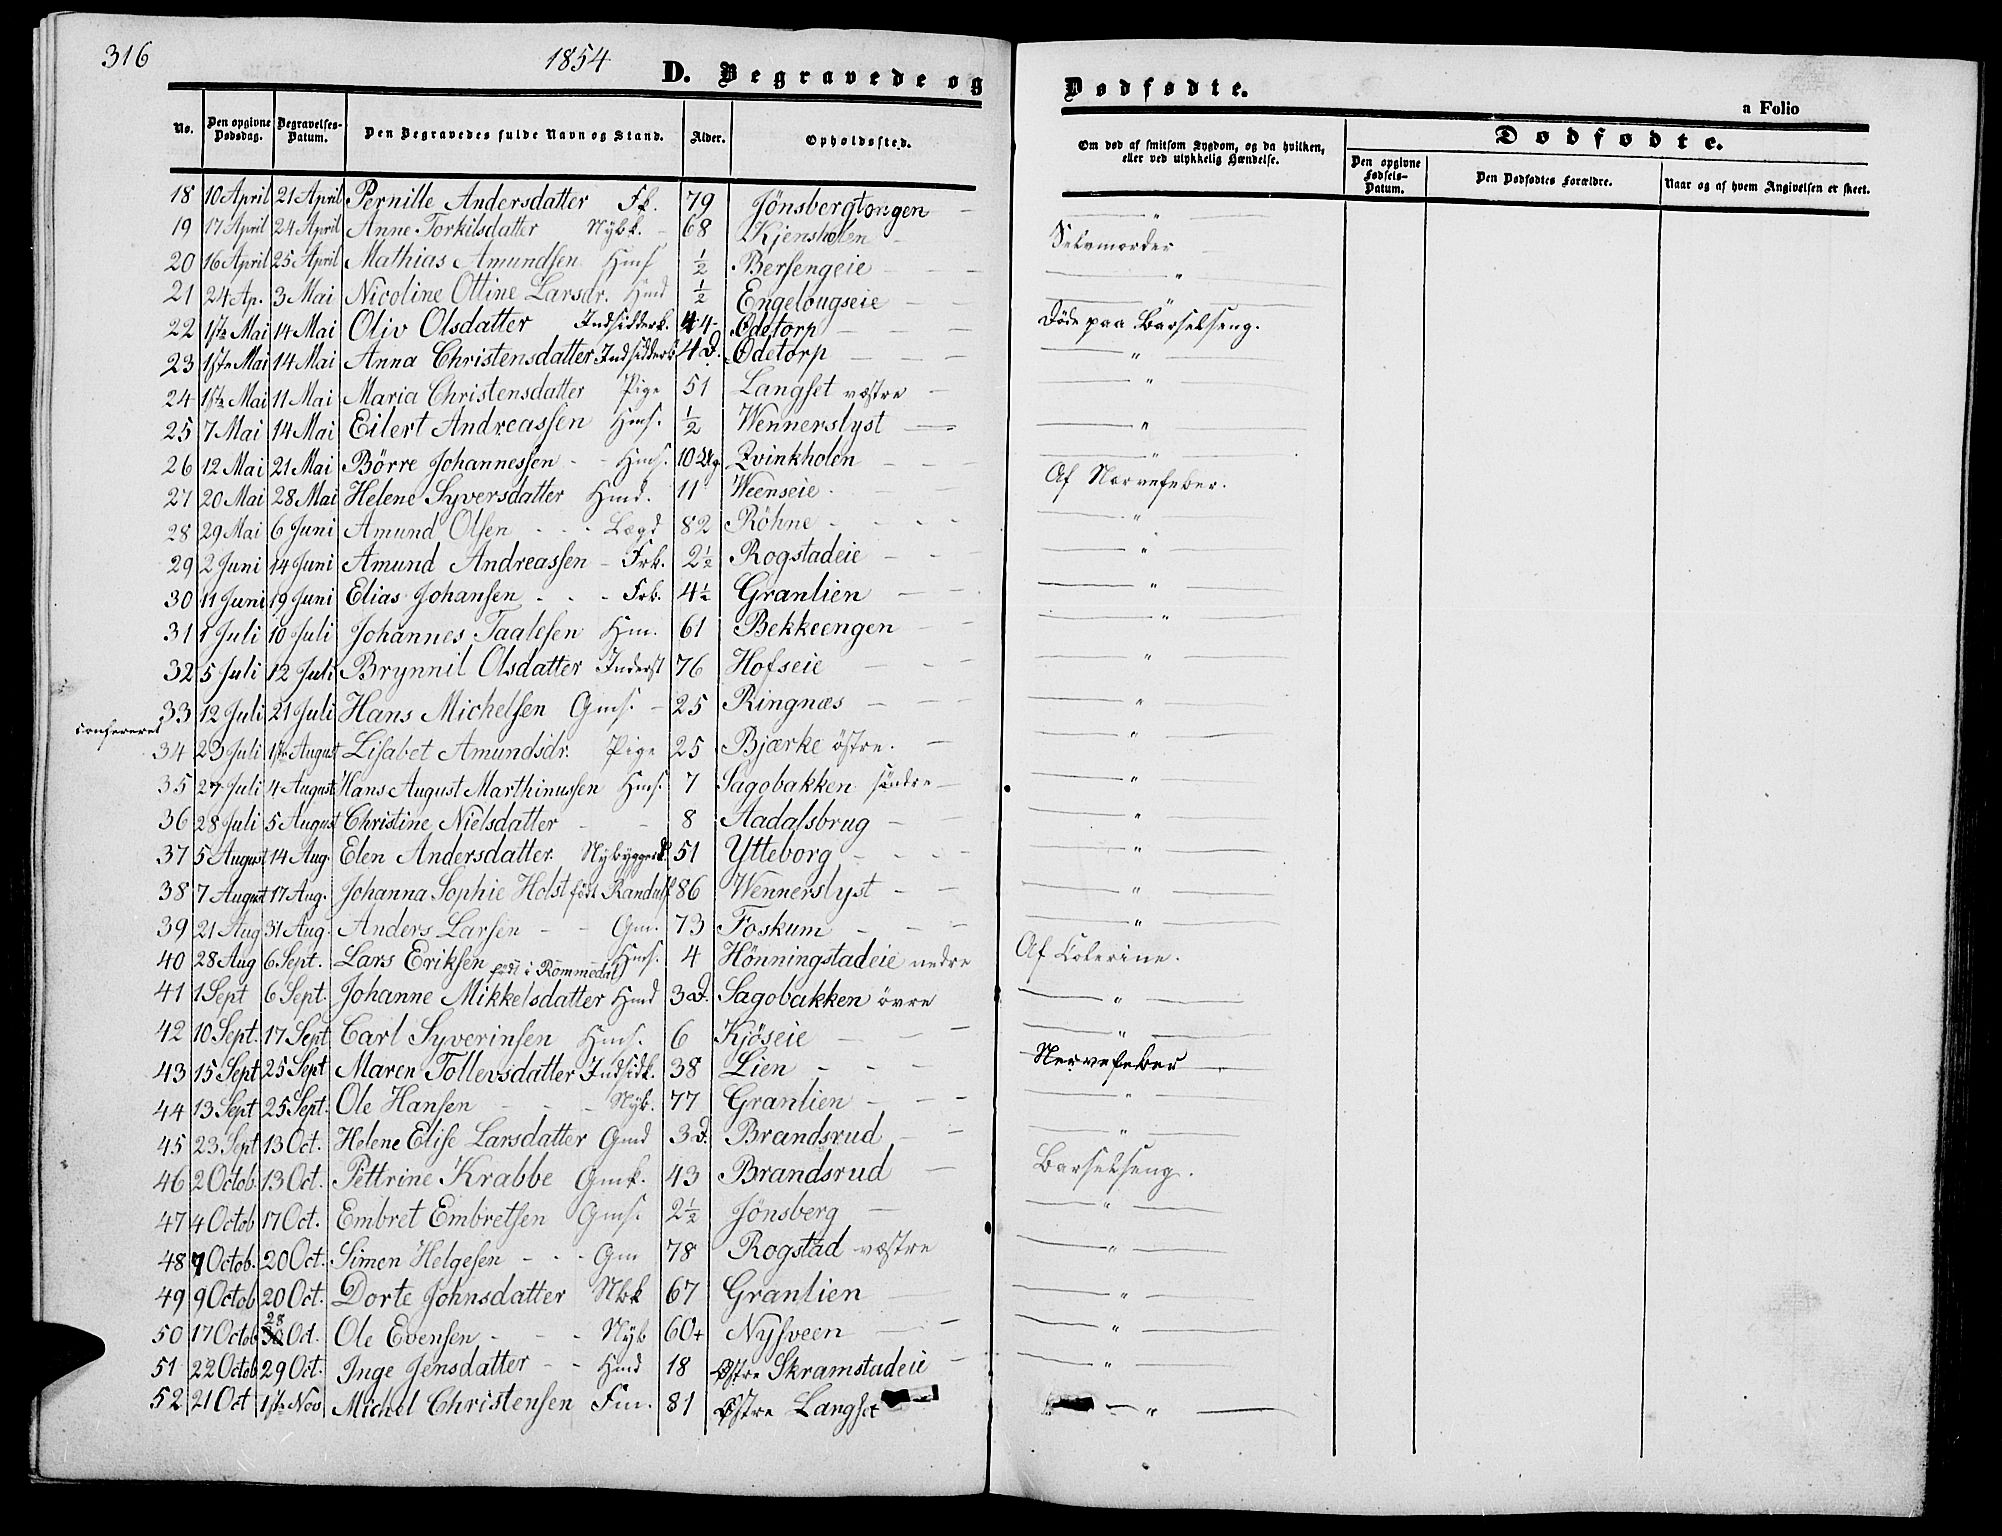 316
1854
D. Begravede og Dødfødte.
a Folio
No. | Den opgivne Dødsdag. | Begravelses-Datum. | Den Begravedes fulde Navn og Stand. | Alder. | Opholdssted. | Om død af smitsom Sygdom, og da hvilken, eller ved ulykkelig Hændelse. | Dødfødte. | Den opgivne Fødsels-Datum. | Den Dødfødtes Forældre. | Naar og af hvem Angivelsen er skeet.
18 10 April 21 April Pernille Andersdatter Fk. 79 Jönsbergtongen — "
19 17 April 24 April Anne Torkilsdatter Nybk. 68 Kjensholen — Selvmorder
20 16 April 25 April Mathias Amundsen Hms 1/2 Bersengeie — "
21 24 Ap. 3 Mai Nicoline Ottine Larsdr. Hmd 1/2 Engelougseie —
22 1ste Mai 14 Mai Oliv Olsdatter Indsidderk. 44 Ødetorp — Döde paa Barselseng.
23 1ste Mai 14 Mai Anna Christensdatter Indsidderb 4 D. Ødetorp — "
24 1ste Mai 11 Mai Maria Christensdatter Pige 51 Langset vestre — "
25 7 Mai 14 Mai Eilert Andreassen Hms. 1/2 Wennerslyst — "
26 12 Mai 21 Mai Börre Johannessen - - Hms. 10 Ug Qvinkholen — "
27 20 Mai 28 Mai Helene Syversdatter Hmd. 11 Weenseie. Af Nervefeber.
28 29 Mai 6 Juni Amund Olsen - - - Lægd 82 Röhne - — "
29 2 Juni 14 Juni Amund Andreassen - Frk. 2 1/2 Rogstadeie — "
30 11 Juni 19 Juni Elias Johansen - - - Frk. 4 1/2 Granlien — "
31 1 Juli 10 Juli Johannes Taalesen Hm. 61 Bekkeengen — "
32 5 Juli 12 Juli Brynnil Olsdatter Inderst 76 Hofseie — "
33 12 Juli 21 Juli Hans Michelsen Gms. - 25 Ringnæs — "
confereret
34 23 Juli 1ste August Lisabet Amundsdr. Pige 25 Bjærke östre. — "
35 27 Juli 4 August Hans August Marthinussen Hms. 7 Sagobakken söndre — "
36 28 Juli 5 August Christine Nielsdatter - 8 Aadalsbrug — "
37 5 August 14 Aug. Elen Andersdatter. Nybyggerk. 51 Ytteborg — "
38 7 August 17 Aug. Johanna Sophie Holst födt Randulf 86 Wennerslyst — "
39 21 Aug 31 Aug. Anders Larsen - - Gm. 73 Foskum — "
40 28 Aug 6 Sept. Lars Eriksen Hms. 4 Hönningstadeie nedre Af Colerine.
födt i Rommedal
41 1 Sept 6 Sept. Johanne Mikkelsdatter Hmd 3 D. Sagobakken övre — "
42 10 Sept. 17 Sept Carl Syverinsen Hms. 6 Kjöseie — "
43 15 Sept 25 Sept Maren Tollevsdatter Indsidk. 38 Lien - Nervefeber
44 13 Sept 25 Sept. Ole Hansen - - - Nyb. 77 Granlien — "
45 23 Sept 13 Oct. Helene Elise Larsdatter Gmd 3 D. Brandsrud — "
46 2 Octob. 13 Oct. Pettrine Krabbe Gmk. 43 Brandsrud — Barselseng.
47 4 Octob 17 Oct. Embret Embretsen Gms. 2 1/2 Jönsberg — "
48 7 Octob. 20 Oct. Simen Helgesen - - - Gm 78 Rogstad vestre — "
49 9 Octob 20 Oct. Dorte Johnsdatter Nbk 67 Granlien — "
50 17 Octob 28 Oct. Ole Evensen - - - Nyb 60+ Nysveen — "
51 22 Octob 29 Oct. Inge Jensdatter - - Hmd 18 Östre Skramstadeie — "
52 21 Oct 1ste Nov Michel Christensen Fm. 81 Østre Langset — "